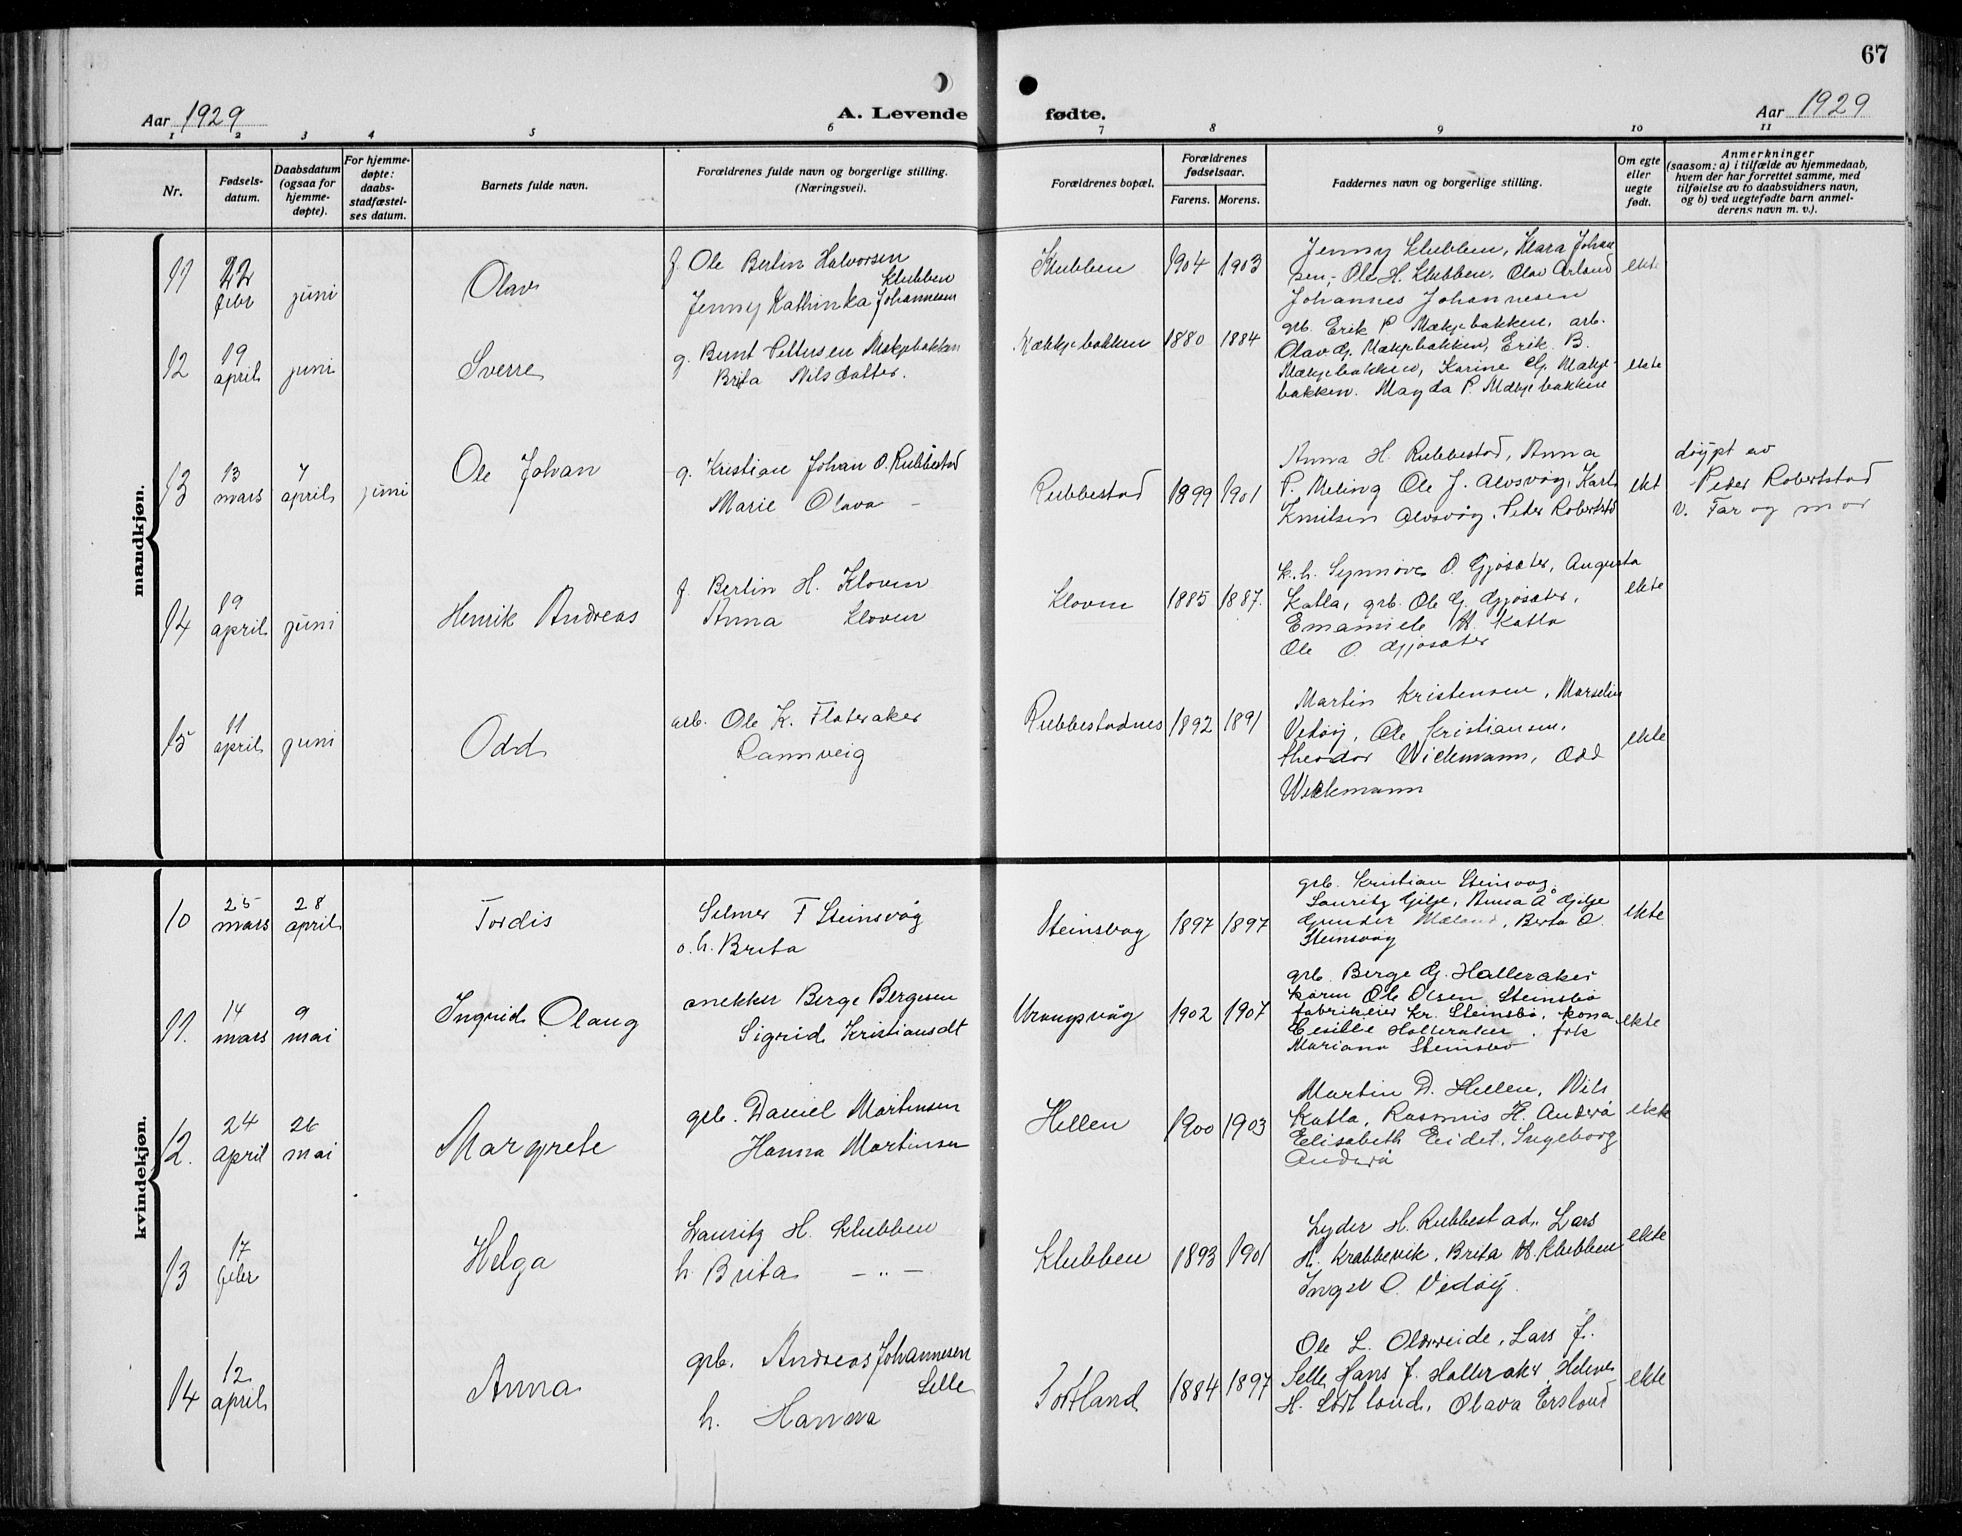 67
Aar 1929
A. Levende
fødte.
Aar 1929
1 2 3 4 5 6 7 8 9 10 11
Nr.
Fødsels-
datum.
Daabsdatum
(ogsaa for
hjemme-
døpte).
For hjemme-
døpte:
daabs-
stadfæstel-
ses datum.
Barnets fulde navn.
Forældrenes fulde navn og borgerlige stilling.
(Næringsvei).
Forældrenes bopæl.
Forældrenes
fødselsaar.
Farens. Morens.
Faddernes navn og borgerlige stilling.
Om egte
eller
uegte
født.
Anmerkninger
(saasom: a) i tilfælde av hjemmedaab,
hvem der har forrettet samme, med
tilføielse av to daabsvidners navn,
og b) ved uegtefødte barn anmel-
derens navn m. v.).
mandkjøn.
11
22
febr
juni
Olav
f. Ole Bertin Halvorsen
Klubben
Jenny Kathinka Johannesen
Klubben
1904 1903
Jenny Klubben, Klara Johan
sen, Ole H. Klubben, Olav Årland
Johannes Johannesen
ekte
12
19
april
juni
Sverre
g. Bernt Pettersen Mækjebakken
Brita Nilsdatter.
Mækkjebakken
1880 1884
grb. Erik P. Mækjebakken, arb.
Olav G. Mækjebakken, Erik B.
Mækjebakken, Karine G. Mækje-
bakken. Magda P. Mækjebakken
ekte
13
13
mars
7
april
juni
Ole Johan
g. Kristian Johan O. Rubbestad
Marie Olava -
Rubbestad
1899 1901
Anna H. Rubbestad, Anna
P. Meling Ole J. Alvsvåg, Karl
Knutsen Alvsvåg, Peder Robertstad
ekt
døypt av
Peder Robertstad
v. Far og mor
14
19
april
juni
Henrik Andreas
f. Bertin H. Kloven
Anna Kloven
Kloven
1885 1887.
k.h. Synnøve O. Gjøsæter, Augusta
Katla, grb. Ole G. Gjøsæter,
H. Katla
Ole O. Gjøsæter
ekte
15
11
april
juni
Odd
arb. Ole K. Flateraker
Rannveig
Rubbestadnes
1892 1891
Martin Kristensen, Marselin
Vedøy, Ole Kristiansen,
Theodor Wickmann, Odd
Wickmann
ekte
kvindekjøn.
10
25
mars
28
april
Tordis
Selmer F Steinsvåg
o. h. Brita
Steinsvag
1897 1897
grb. Kristian Steinsvag,
Lauritz Gilje, Anna Å Gilje
Gunder Mæland, Berta O.
Steinsvåg
ekte
11.
14
mars
9
mai
Ingrid Olaug
snekker Berge Bergesen
Sigrid Kristiansdt
Urangsvåg
1902 1907
grb. Berge G. Halleraker
Karin Ole Olsen Steinsbø
fabrikeier Kr. Steinsbø, kona
Halleraker, frk
Mariana Steinsbø
ekte
12.
24
april
26
mai
Margrete
grb. Daniel Martinsen
Hanna Martinsen
Hellen
1900 1903
Martin D. Hellen, Nils
Katla, Rasmus H. Anderå
Elisabeth Eidet, Ingeborg
Anderå
ekte
13
17
febr
Helga
Lauritz H. Klubben
h. Brita — „ —
Klubben
1893 1901
Lyder H. Rubbestad, Lars
H. Krabbevik, Brita H. Klubben
Inger O. Vedøy.
ekte
14
12
april
Anna
grb. Andreas Johannesen
Selle
h. Hanna
Sortland
1884 1897
Ole L. Olderveide, Lars J.
Selle Hans J. Halleraker, Helene
H. Sortland, Olava Ersland
ekte